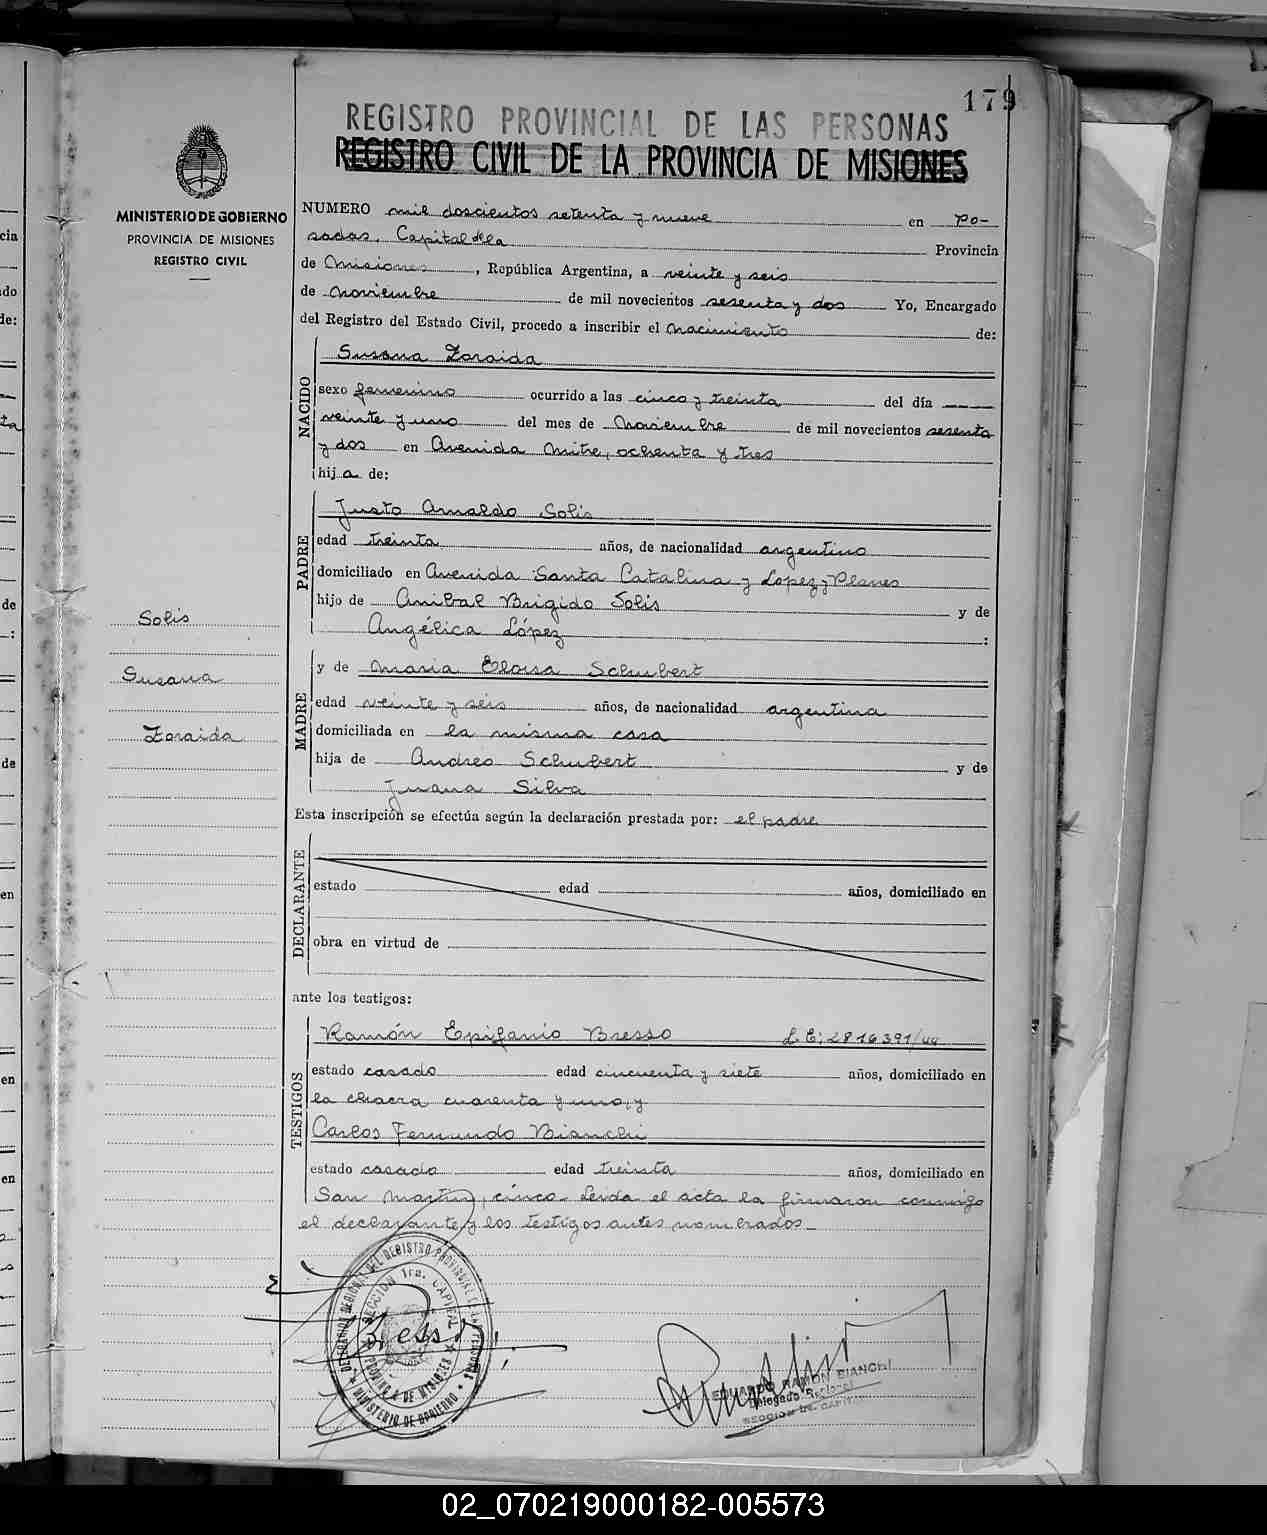 179
REGISTRO PROVINCIAL DE LAS PERSONAS
REGISTRO CIVIL DE LA PROVINCIA DE MISIONES
MINISTERIO DE GOBIERNO
PROVINCIA DE MISIONES
REGISTRO CIVIL
NUMERO mil doscientos setenta y nueve en Po-
sadas, Capital de la Provincia
de Misiones, República Argentina, a veinte y seis
de noviembre de mil novecientos sesenta y dos Yo, Encargado
del Registro del Estado Civil, procedo a inscribir el nacimiento de:
NACIDO
Susana Zoraida
sexo femenino ocurrido a las cinco y treinta del día
veinte y uno del mes de Noviembre de mil novecientos sesenta
y dos en Avenida Mitre, ochenta y tres
hij a de:
PADRE
Justo Arnaldo Solis
edad treinta años, de nacionalidad argentino
domiciliado en Avenida Santa Catalina y Lopez y Planes
hijo de Anibal Brigido Solis y de
Angélica López :
MADRE
y de Maria Eloisa Schubert
edad veinte y seis años, de nacionalidad argentina
domiciliada en la misma casa
hija de Andres Schubert y de
Juana Silva
Solis
Susana
Zoraida
Esta inscripción se efectúa según la declaración prestada por: el padre
DECLARANTE
estado edad años, domiciliado en
obra en virtud de
ante los testigos:
TESTIGOS
Ramón Epifanio Bresso L.E: 2816391/44
estado casado edad cincuenta y siete años, domiciliado en
la chacra cuarenta y uno, y
Carlos Fernando Bianchi
estado casado edad treinta años, domiciliado en
San Martin, cinco. Leida el acta la firmaron conmigo
el declarante y los testigos antes nombrados
SECCION 1ra. CAPITAL
PROVINCIA DE MISIONES
MINISTERIO DE GOBIERNO
EDUARDO RAMON BIANCHI
Delegado Regional
SECCION 1ra. CAPITAL
02_070219000182-005573